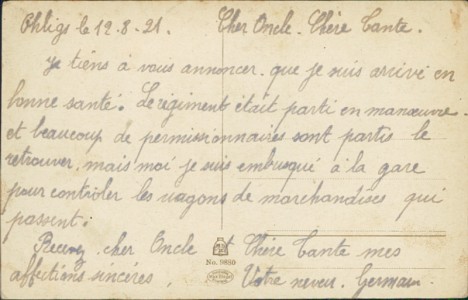 Ohligs le 12-8-21. Cher Oncle. Chère Tante.
Je tiens à vous annoncer que je suis arrivé en
bonne santé. Le régiment était parti en manœuvre.
et beaucoup de permissionnaires sont partis le
retrouver, mais moi je suis embusqué à la gare
pour contrôler les wagons de marchandises qui
passent.
Recevez cher Oncle et Chère Tante mes
affections sincères, Votre neveu. Germain
No. 9880